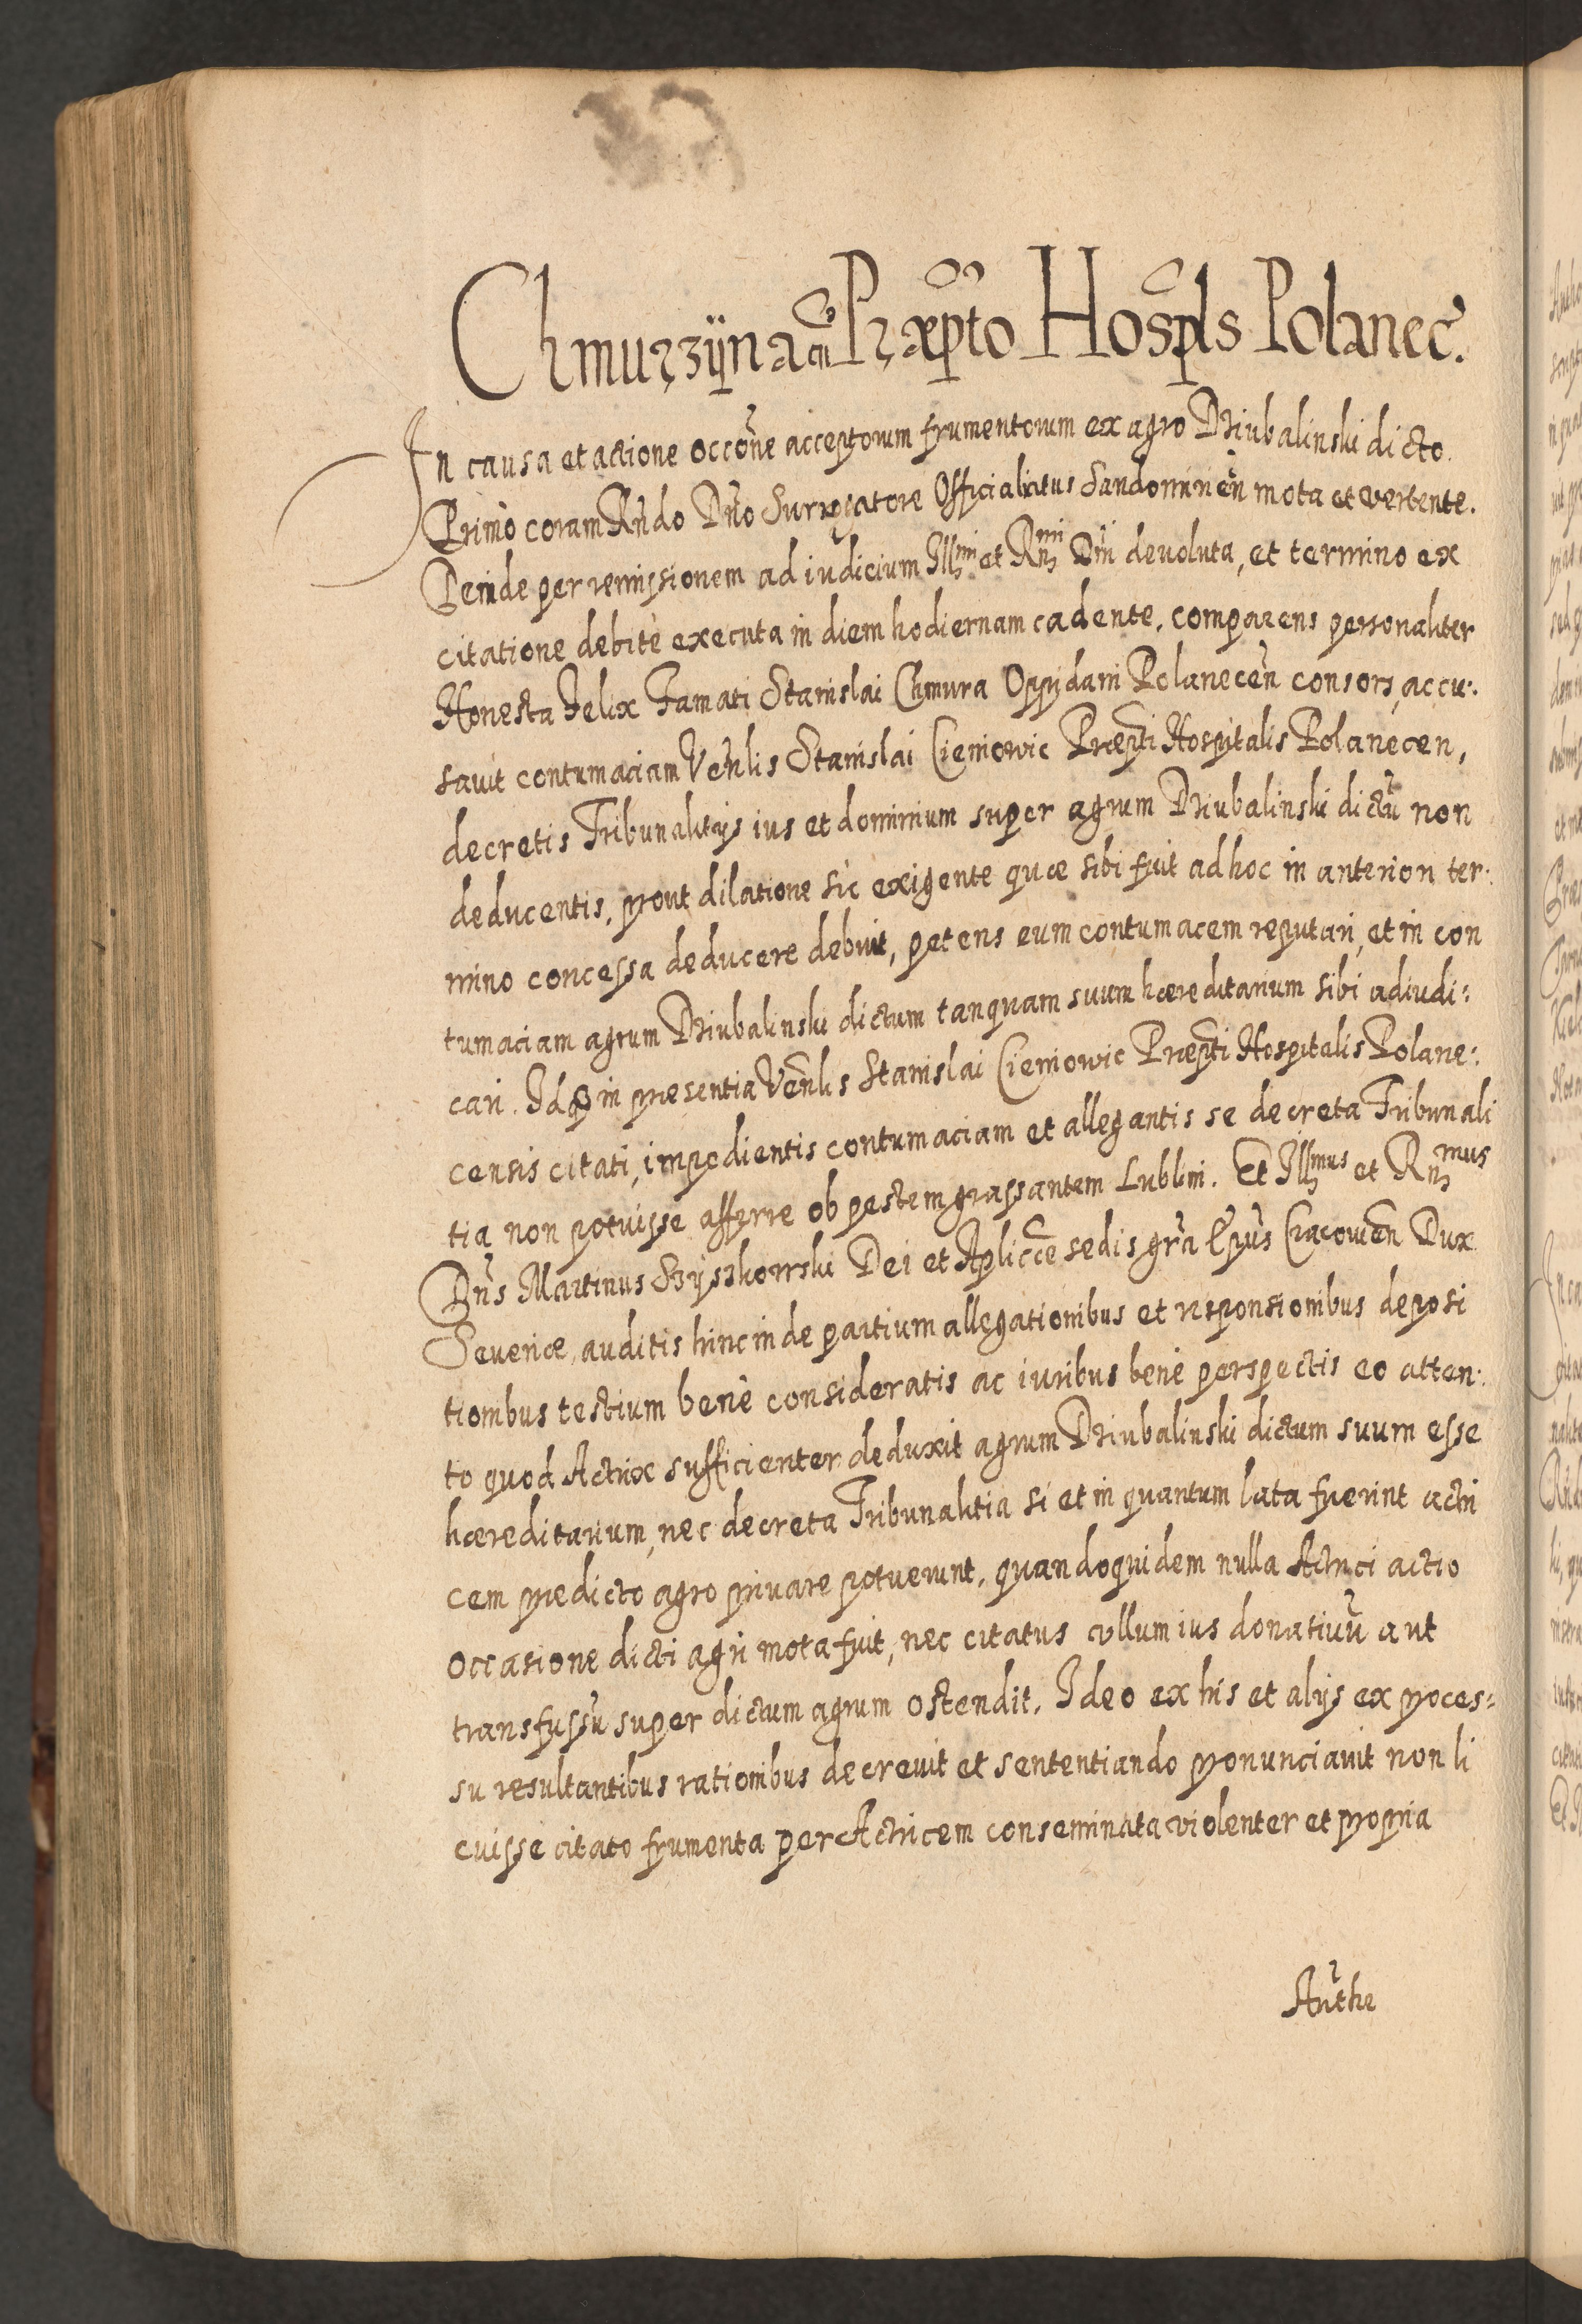 Chmurzÿna cũ Præpto Hospls Polanec̃.
In causa et actione occõne acceptorum frumentorum ex agro Dziubalinski dicto.
Primò coram Rñdo Dño Surrogatore Officialatus Sandomirieñ mota et vertente.
Deinde per remissionem ad iudicium Illmi et Rnmi Dñi devoluta, et termino ex
citatione debitè executa in diem hodiernam cadente. comparens personaliter
Honesta Felix Famati Stanislai Chmura Oppidani Polaneceñ consors, accu:
savit contumaciam Veñlis Stanislai Cieniowic Præpti Hospitalis Polanecen,
decretis Tribunalitijs ius et dominium super agrum Dziubalinski dictũ non
deducentis, prout dilatione sic exigente quæ sibi fuit ad hoc in anteriori ter:
mino concessa deducere debuit, petens eum contumacem reputari, et in con
tumaciam agrum Dziubalinski dictum tanquam suum hæreditarium sibi adiudi:
cari. Idq3 in presentia Veñlis Stanislai Cieniowic Præpti Hospitalis Polane:
censis citati, impedientis contumaciam et allegantis se decreta Tribunali
tia non potuisse afferre ob pestem grassantem Lublini. Et Illmus et Rnmus
Dñs Martinus Szÿszkowski Dei et Aplicæ sedis gr̃a Ep̃us Cracovieñ Dux
Severiæ, auditis hinc inde partium allegationibus et responsionibus deposi
tionibus testium benè consideratis ac iuribus benè perspectis eo atten:
to quod Actrix sufficienter deduxit agrum Dziubalinski dictum suum esse
hæreditarium, nec decreta Tribunalitia si et in quantum lata fuerint actri
cem predicto agro privare potuerunt, quandoquidem nulla Actrici actio
occasione dicti agri mota fuit, nec citatus ullum ius donativũ aut
transfussũ super dictum agrum ostendit. Ideo ex his et alijs ex proces:
su resultantibus rationibus decrevit et sententiando pronunciavit non li
cuisse citato frumenta per Actricem conseminata violenter et propria
Authe